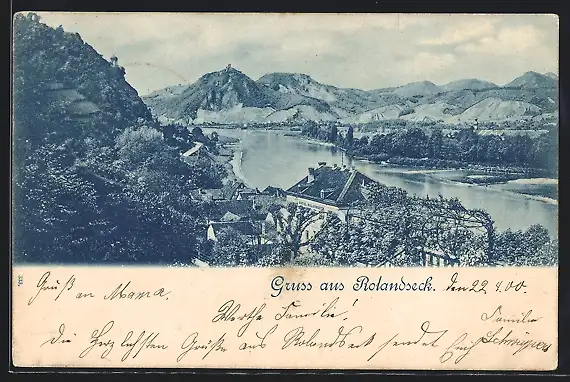 Gruss aus Rolandseck.
den 22.4.00.
Gruß an Mama.
Werthe Familie!
Die Herzlichsten Grüße aus Rolandseck sendet Euch
Familie
335.